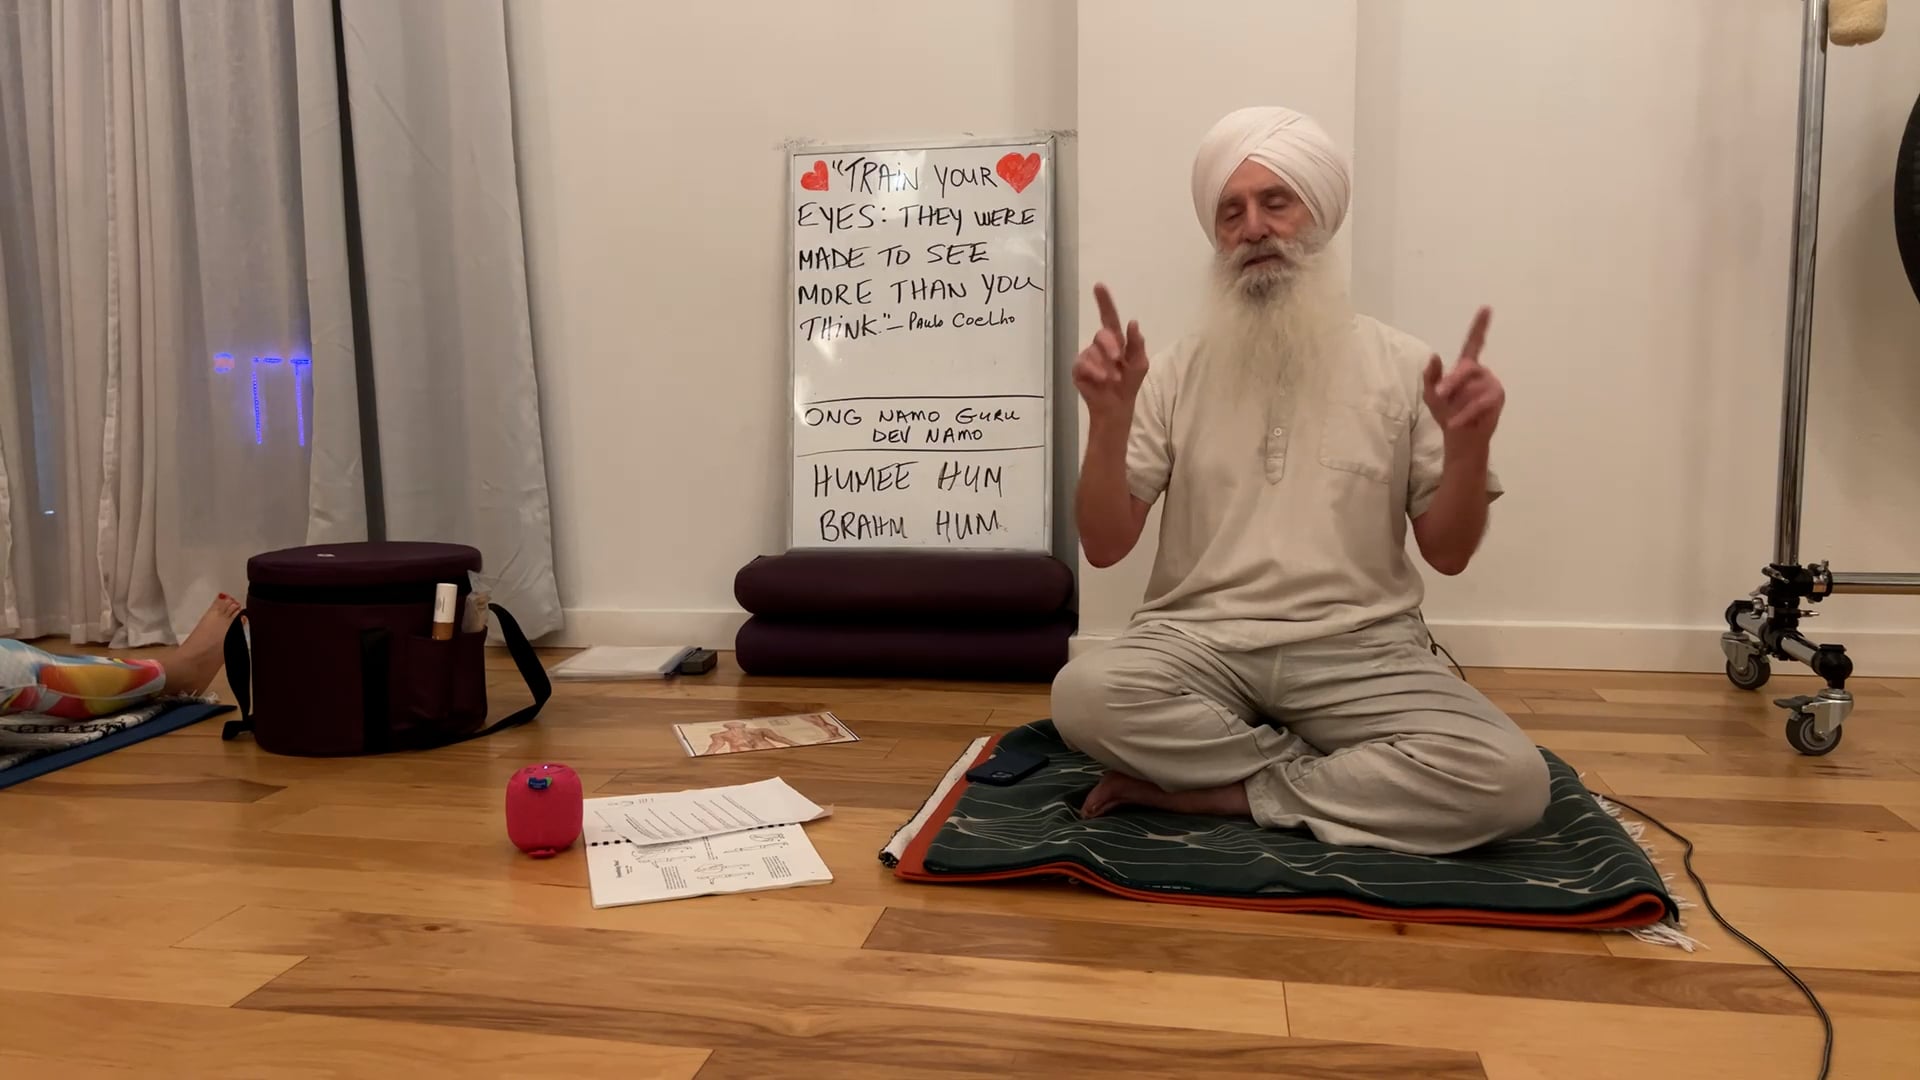 "TRAIN YOUR
EYES: THEY WERE
MADE TO SEE
MORE THAN YOU
THINK." – PAULO COELHO
ONG NAMO GURU
DEV NAMO
HUMEE HUM
BRAHM HUM